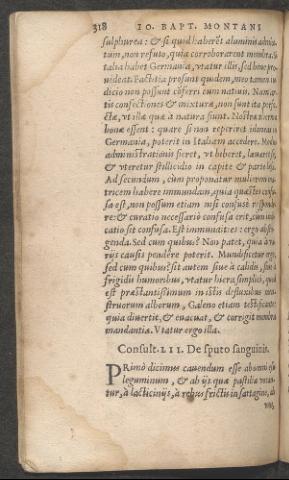 318 IO. BAPT. MONTANI
sulphurea: & si quid haberet aluminis admix-
tum, non refuto, quia corroborarent membra. Si
talia habet Germania, vtatur illis, sed bene pro-
uideat. Factitia prosunt quidem, meo tamen iu-
dicio non possunt cõferri cum natiuis. Nam ar-
tis confectiones & mixturæ, non sunt ita perfe-
ctæ, vt illæ quæ a natura fiunt. Nostra
bonæ essent: quare si non reperiret idonea in
Germania, poterit in Italiam accedere. Modus
administrationis fieret, vt biberet, lauaret se,
& vteretur stillicidio in capite & partibus.
Ad secundum, cùm proponatur mulierem nu-
tricem habere immundam, quia quæstio confu-
sa est, non possum etiam nisi confusè responde-
re: & curatio necessariò confusa erit, cum
sit confusa. Est immundities: ergo abster-
genda. Sed cum quibus? Non patet, quia à va-
rijs causis pendere poterit. Mundificetur ergo,
sed cum quibus? sit autem siue à calidis, siue à
frigidis humoribus, vtatur hiera simplici, quod
est præstantissimum in istis defluxibus men-
struorum alborum, Galeno etiam testificante:
quia diuertit, & euacuat, & corrigit membra
mandantia. Vtatur ergo illa.
Consult. LII. De sputo sanguinis.
PRimò dicimus cauendum esse ab omni
leguminum, & ab ijs quæ pastilla
tur, à lacticinijs, à rebus frictis in sartagine, ab